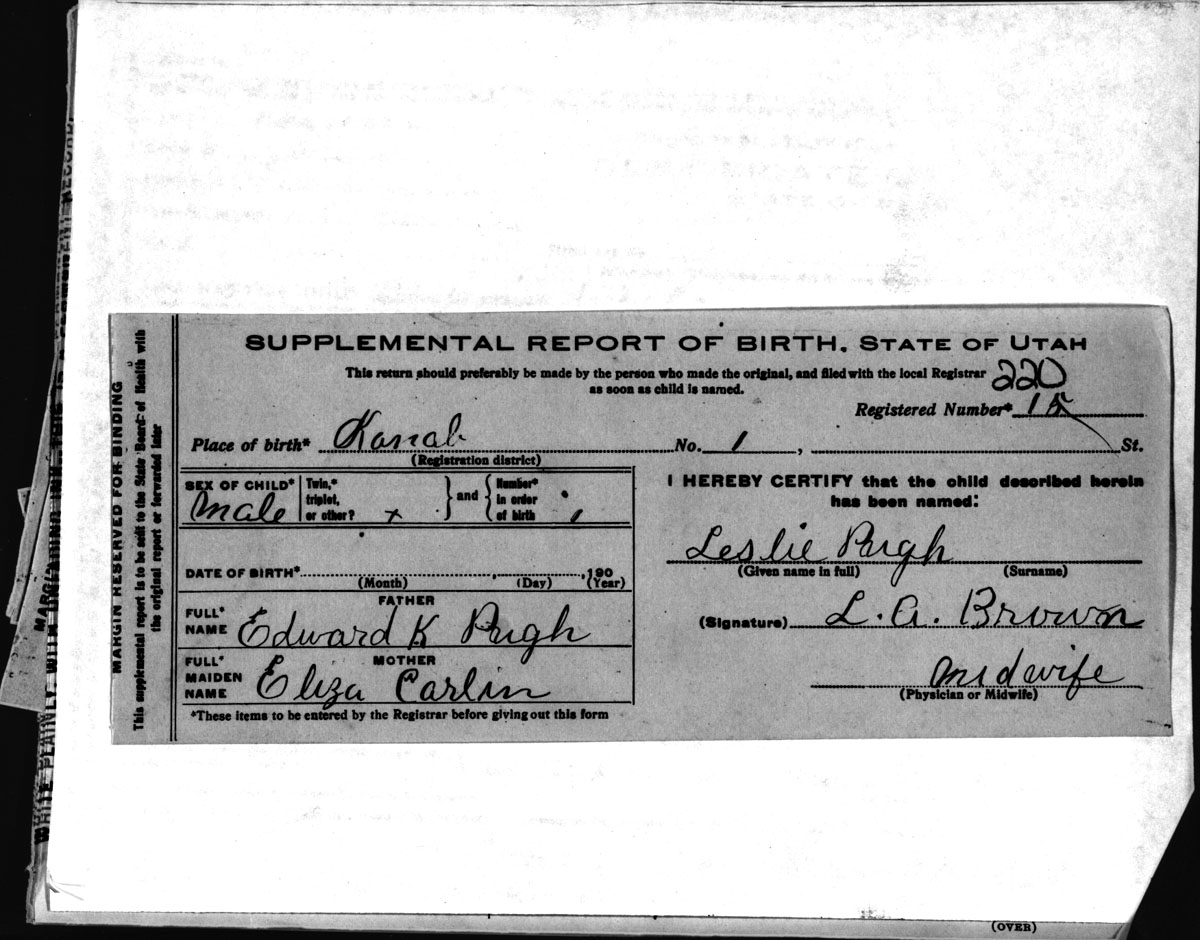 SUPPLEMENTAL REPORT OF BIRTH, STATE OF UTAH
This return should preferably be made by the person who made the original, and filed with the local Registrar
as soon as child is named.
220
Registered Number* 15
Place of birth* Kanab No. 1, St.
(Registration district)
SEX OF CHILD*
Male
Twin,*
triplet,
or other? x
and
Number*
in order
of birth
DATE OF BIRTH* , 190
(Month) (Day) (Year)
FATHER
FULL*
NAME Edward K Pugh
MOTHER
FULL*
MAIDEN
NAME Eliza Carlin
*These items to be entered by the Registrar before giving out this form
I HEREBY CERTIFY that the child described herein
has been named:
Leslie Pugh
(Given name in full) (Surname)
(Signature) L. A. Brown
Midwife
(Physician or Midwife)
MARGIN RESERVED FOR BINDING
This supplemental report is to be sent to the State Board of Health with
the original report or forwarded later
(OVER)